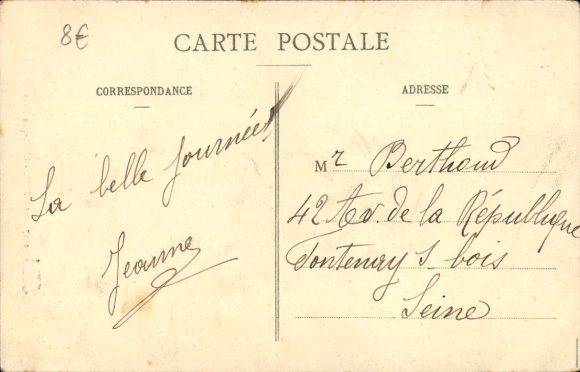 8€
CARTE POSTALE
CORRESPONDANCE
La belle journée
Jeanne
ADRESSE
Mr Berthoud
42 Av. de la République
Fontenay s bois
Seine